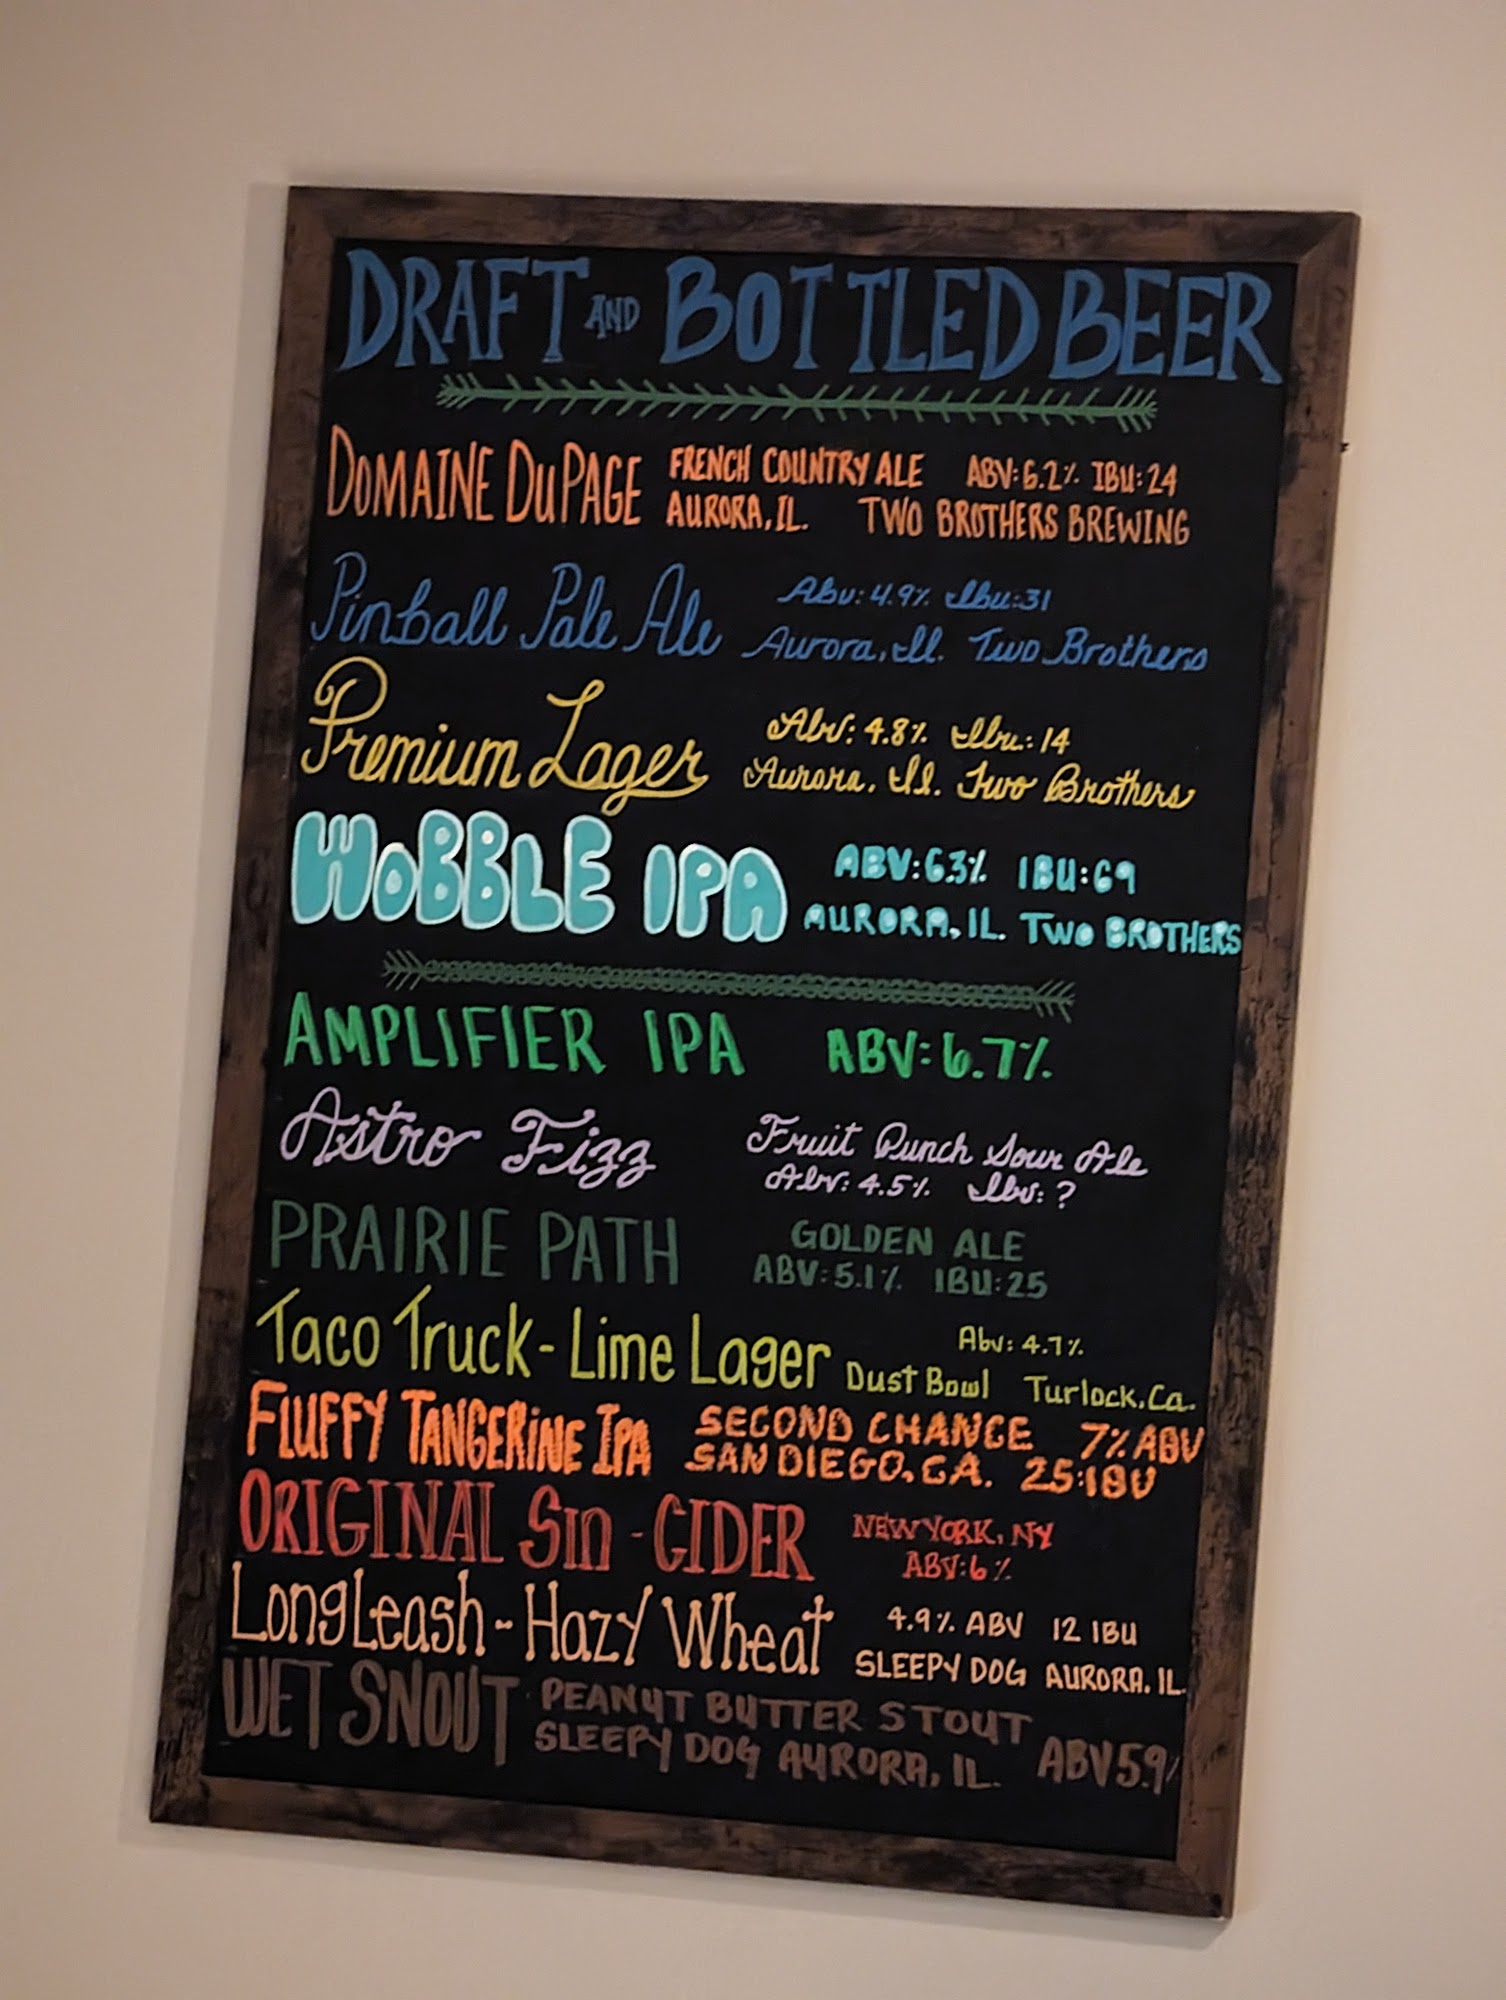 DRAFT AND BOTTLED BEER
DOMAINE DUPAGE FRENCH COUNTRY ALE ABV:6.2% IBU:24
AURORA, IL. TWO BROTHERS BREWING
Pinball Pale Ale Abv:4.9% Ibu:31
Aurora, Il. Two Brothers
Premium Lager Abv: 4.8% Ibu:14
Aurora, Il. Two Brothers
WOBBLE IPA ABV:6.3% IBU:69
AURORA, IL. TWO BROTHERS
AMPLIFIER IPA ABV:6.7%
Astro Fizz Fruit Punch Sour Ale
Abv: 4.5% Ibu: ?
PRAIRIE PATH GOLDEN ALE
ABV:5.1% IBU:25
Taco Truck - Lime Lager Abv: 4.7%
Dust Bowl Turlock, Ca.
FLUFFY TANGERINE IPA SECOND CHANCE 7% ABV
SAN DIEGO, CA. 25:IBU
ORIGINAL Sin - CIDER NEW YORK, NY
ABV:6%
LongLeash - Hazy Wheat 4.9% ABV 12 IBU
SLEEPY DOG AURORA, IL.
WET SNOUT PEANUT BUTTER STOUT
SLEEPY DOG AURORA, IL. ABV 5.9%